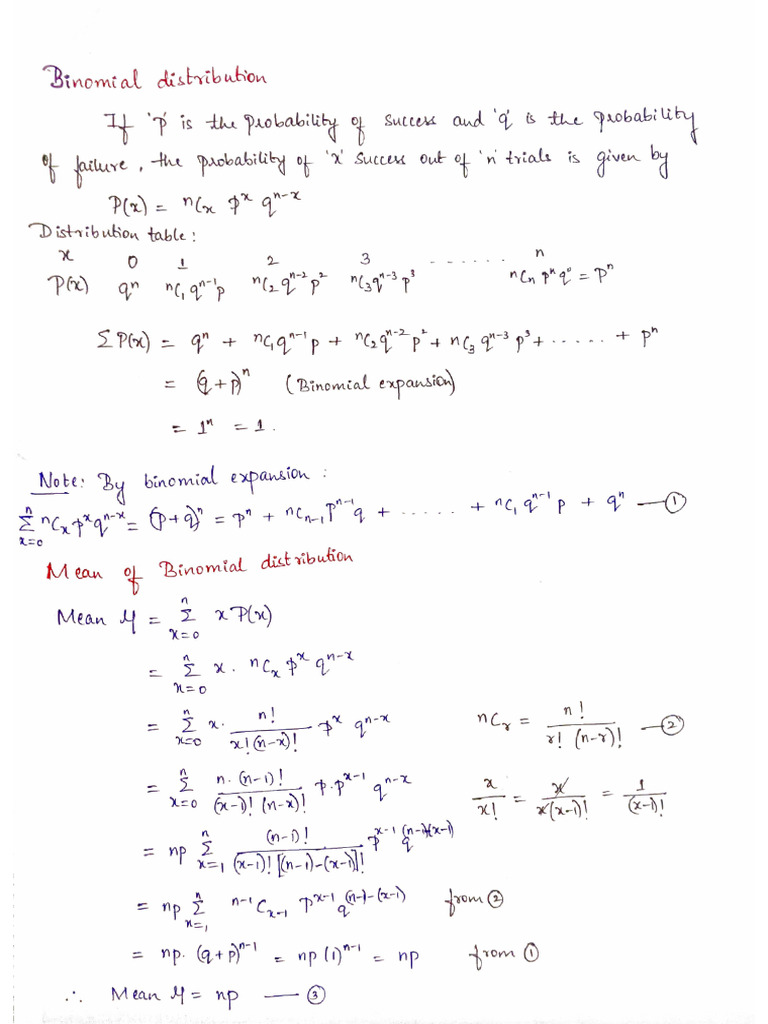 Binomial distribution
If 'p' is the probability of success and 'q' is the probability
of failure, the probability of 'x' success out of 'n' trials is given by
P(x) = nCx p^x q^(n-x)
Distribution table:
x 0 1 2 3 ....... n
P(x) q^n nC1 q^(n-1) p nC2 q^(n-2) p^2 nC3 q^(n-3) p^3 nCn p^n q^0 = p^n
Σ P(x) = q^n + nC1 q^(n-1) p + nC2 q^(n-2) p^2 + nC3 q^(n-3) p^3 + ..... + p^n
= (q+p)^n (Binomial expansion)
= 1^n = 1.
Note: By binomial expansion:
Σ_{x=0}^{n} nCx p^x q^(n-x) = (p+q)^n = p^n + nC_{n-1} p^(n-1) q + ...... + nC1 q^(n-1) p + q^n — ①
Mean of Binomial distribution
Mean μ = Σ_{x=0}^{n} x P(x)
= Σ_{x=0}^{n} x . nCx p^x q^(n-x)
= Σ_{x=0}^{n} x . n!/(x!(n-x)!) p^x q^(n-x) nCr = n!/(r!(n-r)!) — ②
= Σ_{x=0}^{n} n.(n-1)!/((x-1)!(n-x)!) p.p^(x-1) q^(n-x) x/x! = x/(x(x-1)!) = 1/(x-1)!
= np Σ_{x=1}^{n} (n-1)!/((x-1)![(n-1)-(x-1)]!) p^(x-1) q^((n-1)-(x-1))
= np Σ_{x=1}^{n} n-1C_{x-1} p^(x-1) q^((n-1)-(x-1)) from ②
= np.(q+p)^(n-1) = np(1)^(n-1) = np from ①
∴ Mean μ = np — ③